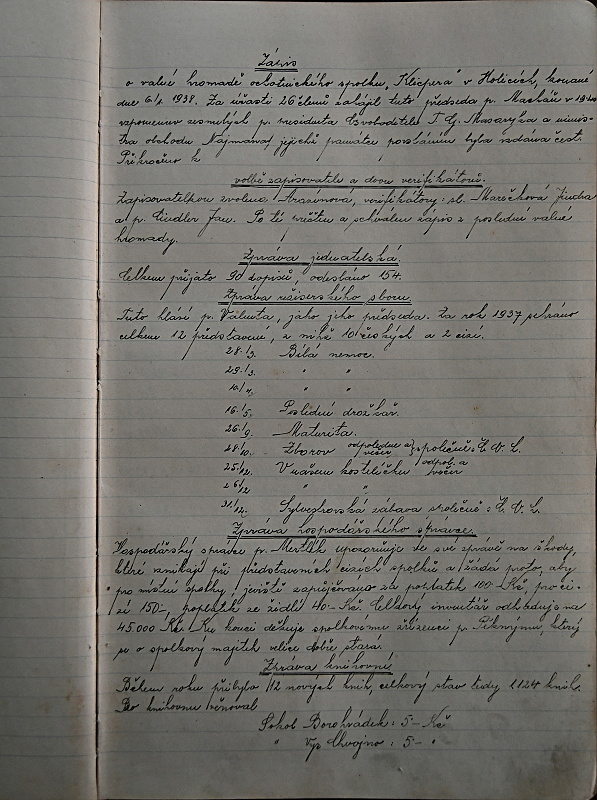 Zápis
o valné hromadě ochotnického spolku „Klicpera" v Holicích, konané
dne 6./I. 1938. Za účasti 26 členů zahájil tuto předseda p. Macháň v
vzpomenuv zesnulých p. presidenta Osvoboditele T. G. Masaryka a minis-
tra obchodu Najmana, jejichž památce povstáním byla vzdána čest.
Přikročeno k
volbě zapisovatele a dvou verifikátorů.
Zapisovatelkou zvolena Arazimová, verifikátory: sl. Marečková Jindra
a p. Lindler Jan. Po té přečten a schválen zápis z poslední valné
hromady.
Zpráva jednatelská.
Celkem přijato 92 dopisů, odesláno 154.
Zpráva režisérského sboru.
Tuto hlásí p. Valenta, jako jeho předseda. Za rok 1937 sehráno
celkem 12 představení, z nichž 10 českých a 2 cizí.
28./3. Bílá nemoc.
29./3. " "
10/4. " "
16./5. Poslední drožkář.
26/9. Maturita.
28/10. Zborov odpoledne a večer společně s Č. O. L.
25/12. V našem kostelíčku odpol. a večer
26/12 " "
31./12. Sylvestrovská zábava společně s Č. O. L.
Zpráva hospodářského správce.
Hospodářský správce p. Mertlík upozorňuje ve své zprávě na škody,
které vznikají při představeních cizích spolků a žádá proto, aby
pro místní spolky jeviště zapůjčováno za poplatek 100- Kč, pro ci-
zí 150-, poplatek ze židlí 40- Kč. Celkový inventář odhaduje na
45.000 Kč. Ku konci děkuje spolkovému zřízenci p. Pěknýmu, který
se o spolkový majetek velice dobře stará.
Zpráva knihovní.
Během roku přibylo 12 nových knih, celkový stav tedy 1124 knih.
Pro knihovnu věnoval
Sokol Borohrádek: 5- Kč
" Vys. Chvojno: 5- "